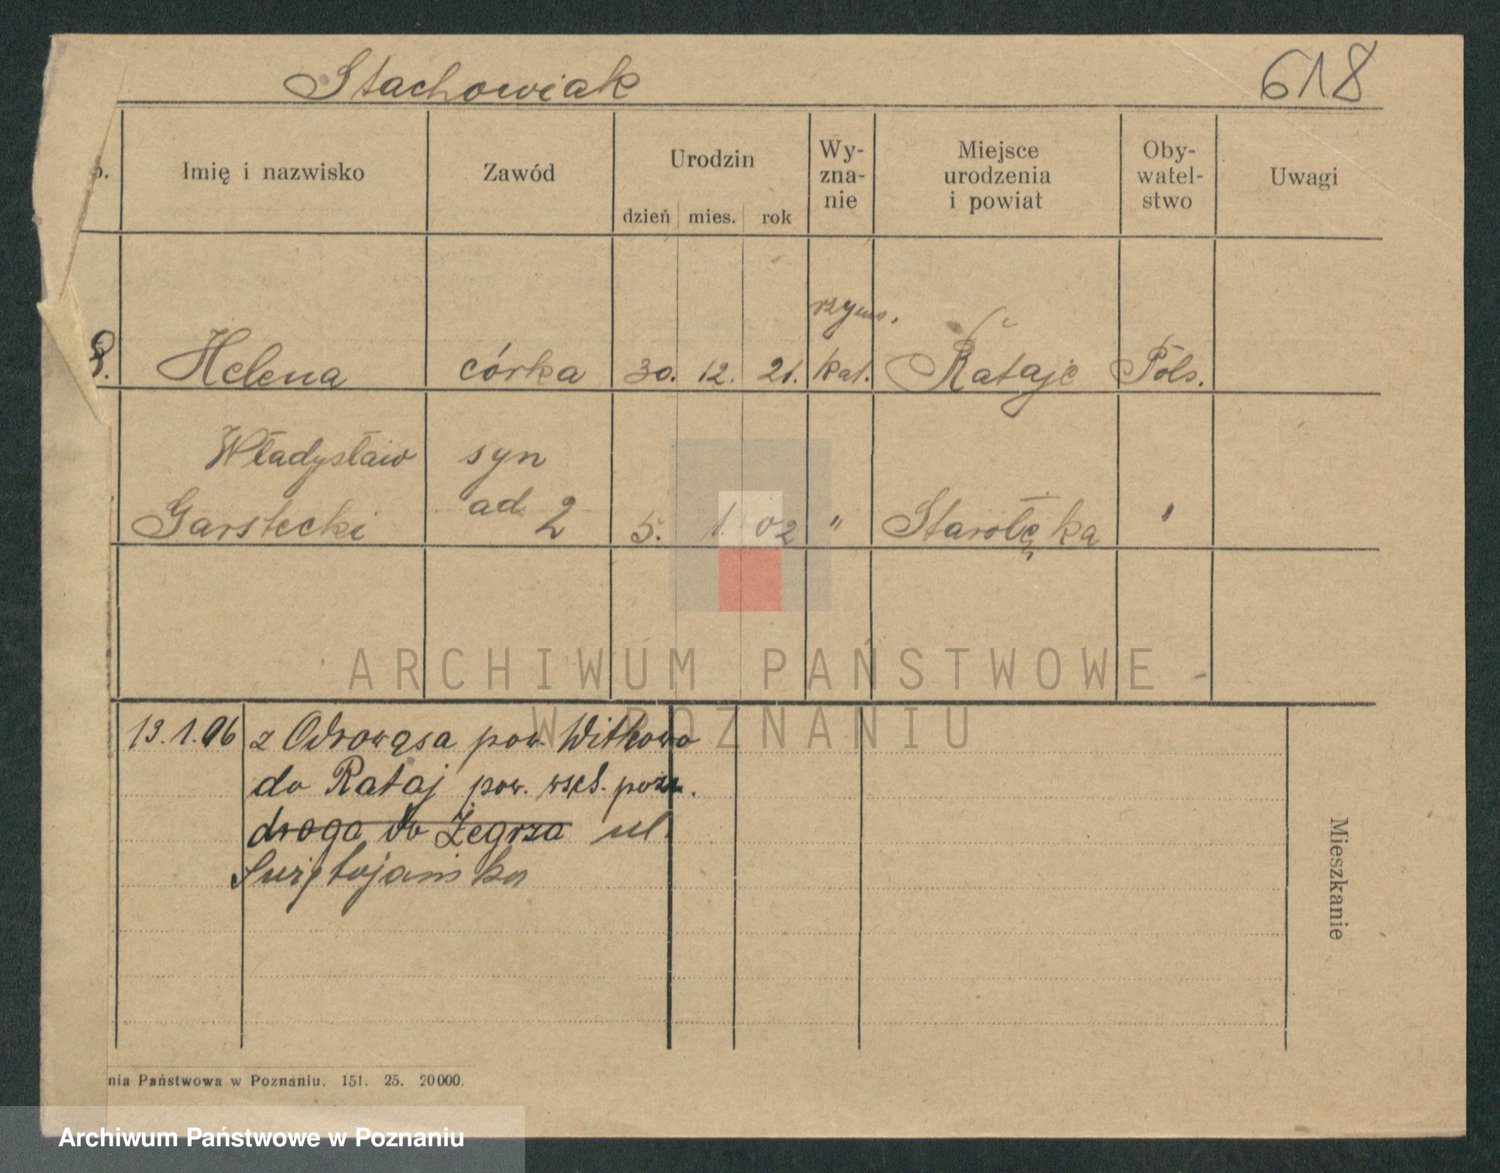 Stachowiak 618
Imię i nazwisko Zawód Urodzin dzień mies. rok Wy-zna-nie Miejsce urodzenia i powiat Oby-watel-stwo Uwagi
rzyms.
8. Helena córka 30. 12. 21. kat. Rataje Pols.
Władysław syn
Garstecki ad 2 5. 1. 02 " Starołęka "
13.1.06 z Odrowąsa pow. Witkowo
do Rataj pow. wsch. pozn.
droga do Żegrza ul.
Świętojańska
Mieszkanie
nia Państwowa w Poznaniu. 151. 25. 20000.
ARCHIWUM PAŃSTWOWE
W POZNANIU
Archiwum Państwowe w Poznaniu